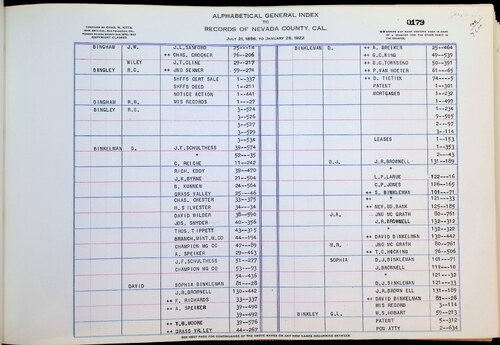 ALPHABETICAL GENERAL INDEX
TO
RECORDS OF NEVADA COUNTY, CAL.
JULY 21, 1856, TO JANUARY 28, 1922
0179
BINGHAM J.H. J.L.SANFORD 25—14
++ CHAS. CROOKER 76—206
WILEY J.T.CLINE 29—217
BINGLEY R.C. ++ JNO SENNER 59—274
SHFFS CERT SALE 1—337
SHFFS DEED 1—211
NOTICE ACTION 1—441
BINGHAM R.H. MIS RECORDS 1—27
BINGLEY R.C. 3—524
3—526
3—527
3—529
3—534
BINKELMAN D. J.F.SCHULTHESS 39—574
" 52—35
C. REICHE 11—242
RICH. EDDY 39—470
J.K.BYRNE 21—504
B. KUNNEN 24—564
GRASS VALLEY 25—46
CHAS. CHESTER 33—375
H. SILVESTER 34—34
DAVID WILDER 38—590
JOS. SNYDER 40—356
THOS. TIPPETT 43—315
BRANCH,MINT.M.CO 44—174
CHAMPION MG CO 47—89
A. SPEIKER 29—463
J.F.SCHULTHESS 51—277
CHAMPION MG CO 53—93
54—436
DAVID SOPHIA BINKELMAN 81—28
J.R.BROWNELL 130—442
++ F. RICHARDS 33—337
++ A. SPEIKER 39—490
39—492
++ T.B.MOORE 39—576
++ GRASS VALLEY 44—267
BINKLEMAN D. ++ A. SPEIKER 25—464
++ G.C.KING 49—539
++ C.O.TOWNSEND 50—391
++ P.VAN HOETER 61—65
++ D. TIETJEN 74—5
PATENT 1—301
MORTGAGES 1—232
1—499
1—234
9—505
2—97
3—114
LEASES 1—153
1—353
2—43
D.J. J.R.BROWNELL 131—189
"
L.P.LARUE 122—16
C.P.JONES 126—165
++ S. BINKLEMAN 101—71
++ " 121—33
++ NEV.CO.BANK 125—185
J.A. JNO MC GRATH 80—761
J.R.BROWNELL 132—312
" 132—322
++ DAVID BINKELMAN 130—442
M.R. JNO MC GRATH 80—761
++ T.C.HOCKING 76—506
SOPHIA D.J.BINKLEMAN 101—71
J.BROWNELL 110—10
" 121—32
++ D.J.BINKLEMAN 121—33
++ J.R.BROWN ELL 131—189
++ DAVID BINKELMAN 81—28
MIS RECORD 3—114
BINKLEY G.L. W.S.HOBART 59—213
PATENT 5—312
POR ATTY 2—634
SEE NEXT PAGE FOR CONTINUANCE OF THE ABOVE NAMES